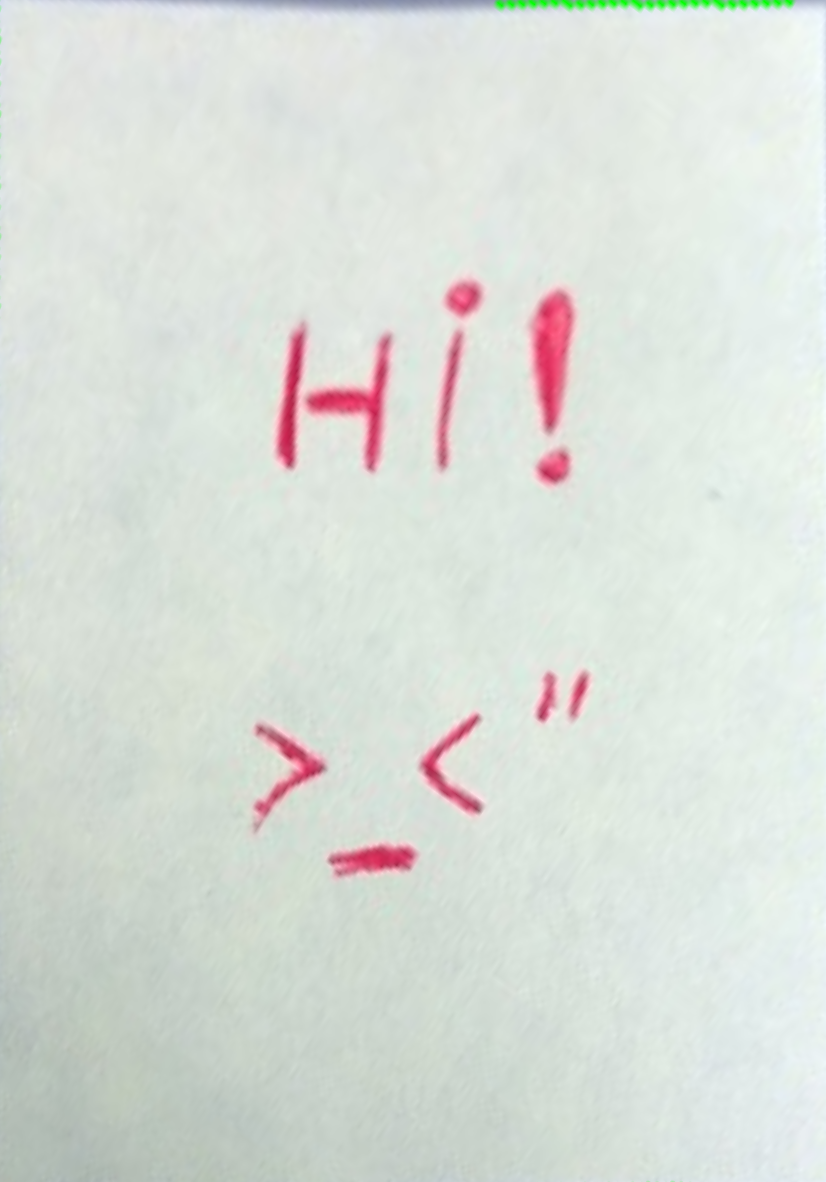 Hi!
>_<"